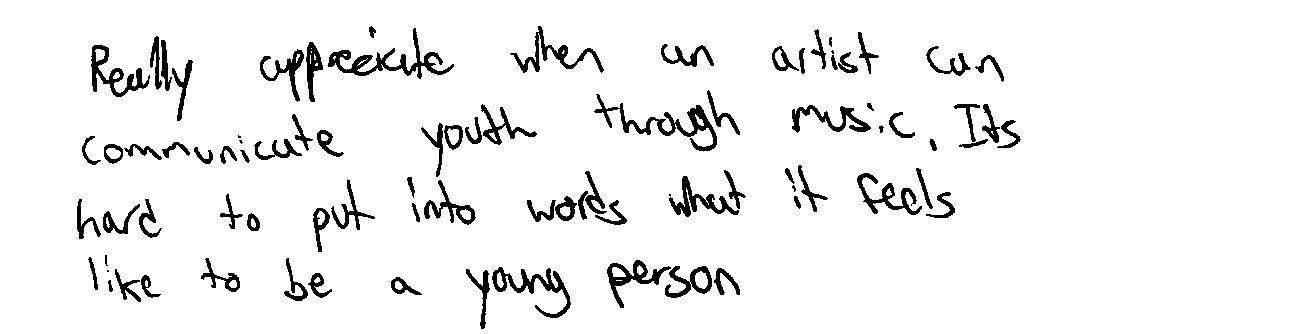 Really appreciate when an artist can
communicate youth through music. Its
hard to put into words what it feels
like to be a young person